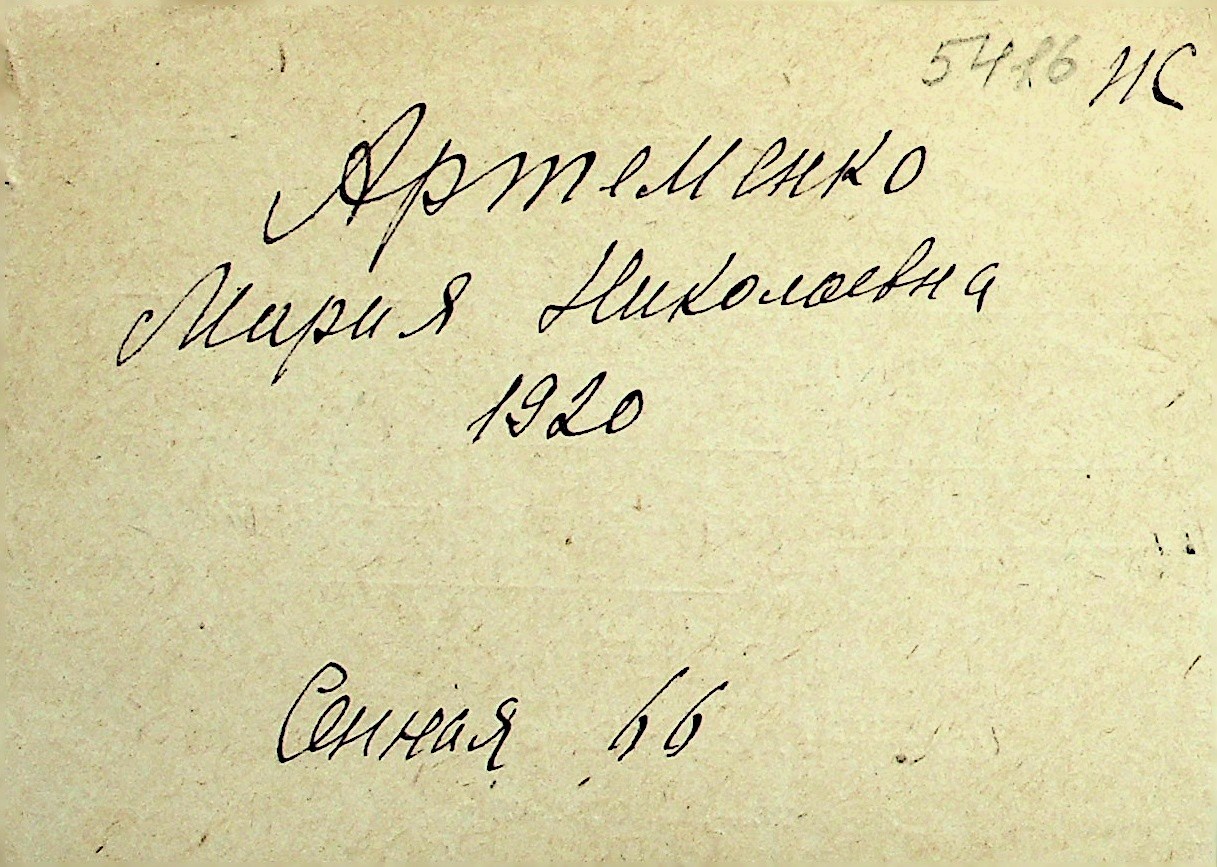 5416 НС
Артеменко
Мария Николаевна
1920
Сенная 66